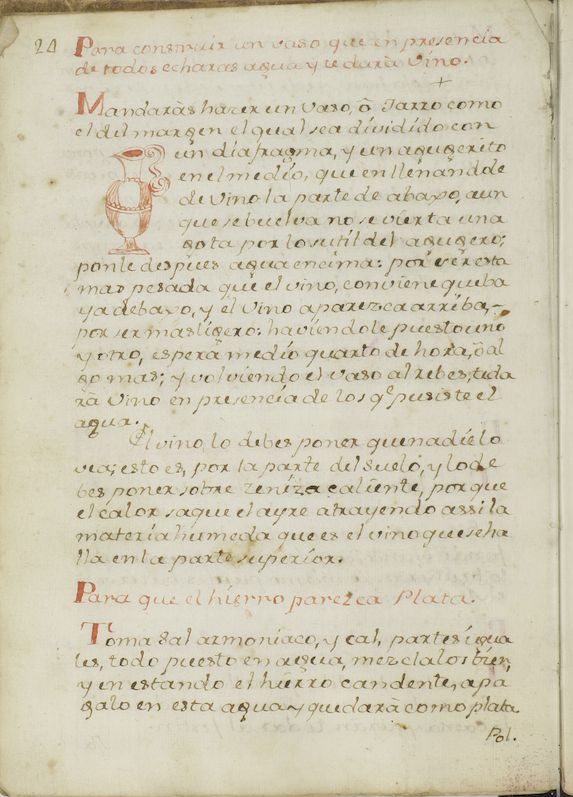 24
Para construir un vaso que en presencia
de todos echaras agua y te darà Vino.
Mandaràs hazer un Vaso, ò Jarro como
el del margen el qual sea dividido con
un diafragma, y un agugerito
en el medio, que en llenandole
de Vino la parte de abaxo, aun
que se buelva no se vierta una
gota por lo sutil del agugero;
ponle despues agua encima: por ser esta
mas pesada que el vino, conviene que ba
ya debaxo, y el Vino aparezca arriba,
por ser mas ligero: haviendole puesto uno
y otro, espera medio quarto de hora, ò al
go mas; y volviendo el vaso al rebes, te da
rà Vino en presencia de los q.e pusiste el
agua.
El vino, lo debes poner que nadie lo
vea; esto es, por la parte del suelo, y lo de
bes poner sobre zeniza caliente, por que
el calor saque el ayre atrayendo assi la
materia humeda que es el vino que se ha
lla en la parte superior.
Para que el hierro parezca Plata.
Toma Sal armoniaco, y cal, partes igua
les, todo puesto en agua, mezclalos bien,
y en estando el hierro candente, apa
galo en esta agua y quedarà como plata
Pol.